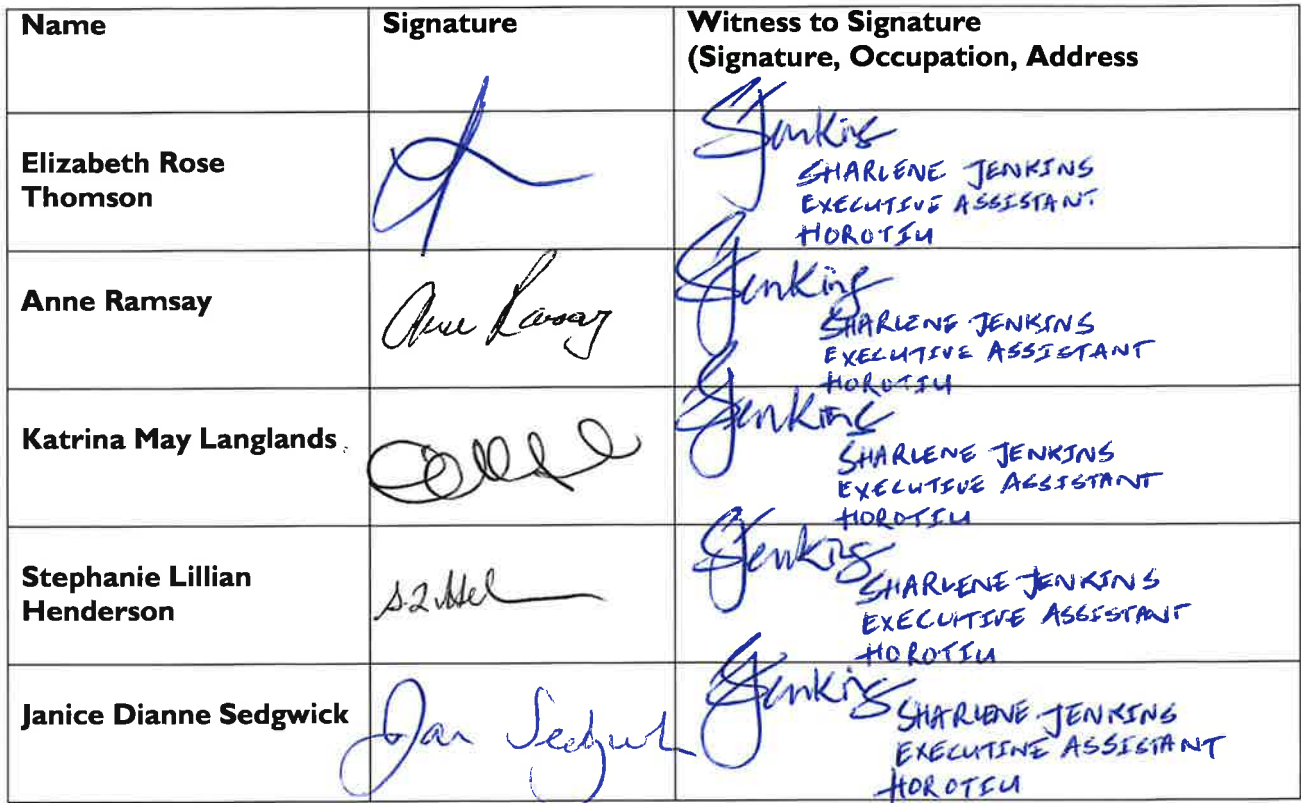 Name Signature Witness to Signature
(Signature, Occupation, Address
Elizabeth Rose
Thomson
SJenkins
SHARLENE JENKINS
EXECUTIVE ASSISTANT
HOROTIU
Anne Ramsay
Anne Ramsay
SJenkins
SHARLENE JENKINS
EXECUTIVE ASSISTANT
HOROTIU
Katrina May Langlands
SJenkins
SHARLENE JENKINS
EXECUTIVE ASSISTANT
HOROTIU
Stephanie Lillian
Henderson
SJenkins
SHARLENE JENKINS
EXECUTIVE ASSISTANT
HOROTIU
Janice Dianne Sedgwick
Jan Sedgwick
SJenkins
SHARLENE JENKINS
EXECUTIVE ASSISTANT
HOROTIU